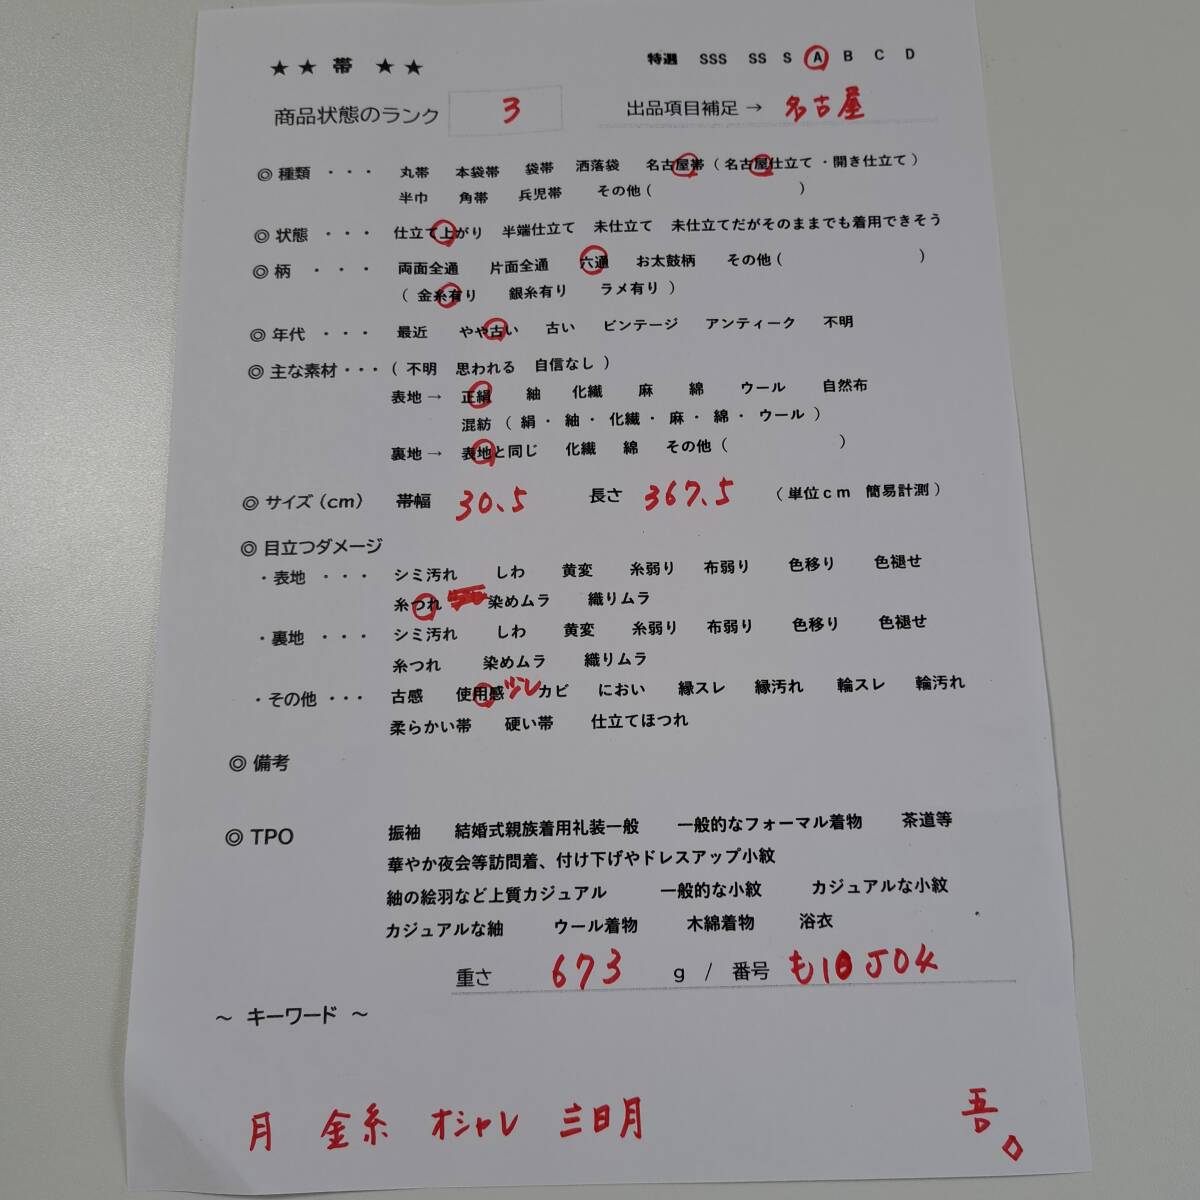 ★ ★ 帯 ★ ★
特選 SSS SS S A B C D
商品状態のランク 3 出品項目補足 → 名古屋
◎ 種類 ・・・ 丸帯 本袋帯 袋帯 洒落袋 名古屋帯 ( 名古屋仕立て ・ 開き仕立て )
半巾 角帯 兵児帯 その他 ( )
◎ 状態 ・・・ 仕立て上がり 半端仕立て 未仕立て 未仕立てだがそのままでも着用できそう
◎ 柄 ・・・ 両面全通 片面全通 六通 お太鼓柄 その他 ( )
( 金糸有り 銀糸有り ラメ有り )
◎ 年代 ・・・ 最近 やや古い 古い ビンテージ アンティーク 不明
◎ 主な素材・・・ ( 不明 思われる 自信なし )
表地 → 正絹 紬 化繊 麻 綿 ウール 自然布
混紡 ( 絹 ・ 紬 ・ 化繊 ・ 麻 ・ 綿 ・ ウール )
裏地 → 表地と同じ 化繊 綿 その他 ( )
◎ サイズ (cm) 帯幅 30.5 長さ 367.5 ( 単位cm 簡易計測 )
◎ 目立つダメージ
・ 表地 ・・・ シミ汚れ しわ 黄変 糸弱り 布弱り 色移り 色褪せ
糸つれ 染めムラ 織りムラ
・ 裏地 ・・・ シミ汚れ しわ 黄変 糸弱り 布弱り 色移り 色褪せ
糸つれ 染めムラ 織りムラ
・ その他 ・・・ 古感 使用感 少し カビ におい 縁スレ 縁汚れ 輪スレ 輪汚れ
柔らかい帯 硬い帯 仕立てほつれ
◎ 備考
◎ TPO 振袖 結婚式親族着用礼装一般 一般的なフォーマル着物 茶道等
華やか夜会等訪問着、付け下げやドレスアップ小紋
紬の絵羽など上質カジュアル 一般的な小紋 カジュアルな小紋
カジュアルな紬 ウール着物 木綿着物 浴衣
重さ 673 g / 番号 も10JOK
～ キーワード ～
月 金糸 オシャレ 三日月 吾